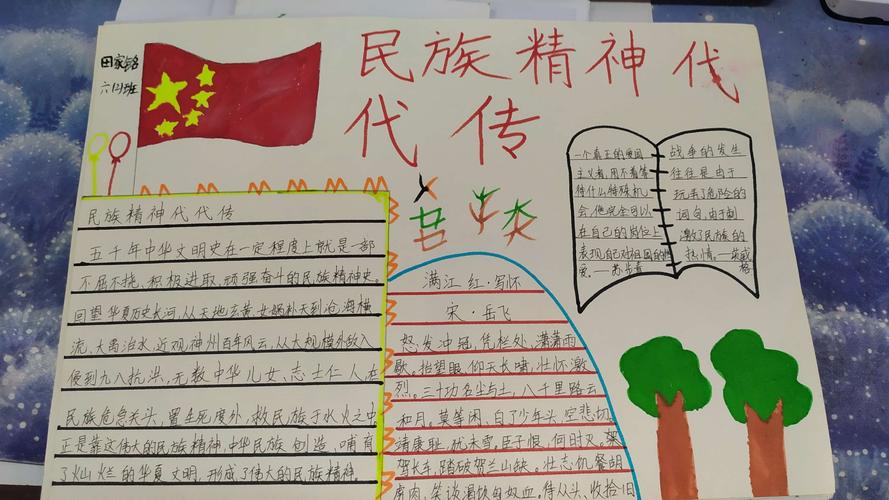 民族精神代
代传
田家铭
六(2)班
民族精神代代传
五千年中华文明史在一定程度上就是一部
不屈不挠、积极进取、顽强奋斗的民族精神史。
回望华夏历史长河,从天地玄黄、女娲补天到沧海横
流、大禹治水,近观神州百年风云,从大规模外敌入
侵到九八抗洪,无数中华儿女、志士仁人在
民族危急关头,置生死度外,救民族于水火之中
正是靠这伟大的民族精神,中华民族创造、哺育
了灿烂的华夏文明,形成了伟大的民族精神。
满江红·写怀
宋·岳飞
怒发冲冠,凭栏处、潇潇雨
歇。抬望眼,仰天长啸,壮怀激
烈。三十功名尘与土,八千里路云
和月。莫等闲、白了少年头,空悲切。
靖康耻,犹未雪。臣子恨,何时灭。驾
驾长车,踏破贺兰山缺。壮志饥餐胡
虏肉,笑谈渴饮匈奴血。待从头、收拾旧
一个真正的爱国
主义者,用不着等
待什么特殊机
会,他完全可以
在自己的岗位上
表现自己对祖国的热
爱。——苏步青
战争的发生
往往是由于
玩弄了危险的
词句,由于刺
激了民族的
热情。——英威
格